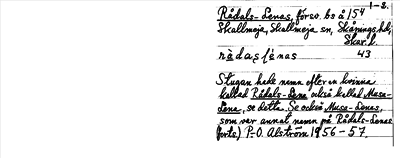 1-2.
Rådals-Lenas, försv. bs å 154
Skallmeja, Skallmeja sn, Skånings hd,
Skar. l.
43
Stugan hade namn efter en kvinna
kallad Rådals-Lena också kallad Musa-
Lena, se detta. Se också Musa-Lenas,
som var annat namn på Rådals-Lenas
(forts) P.-O. Alström 1956-57.